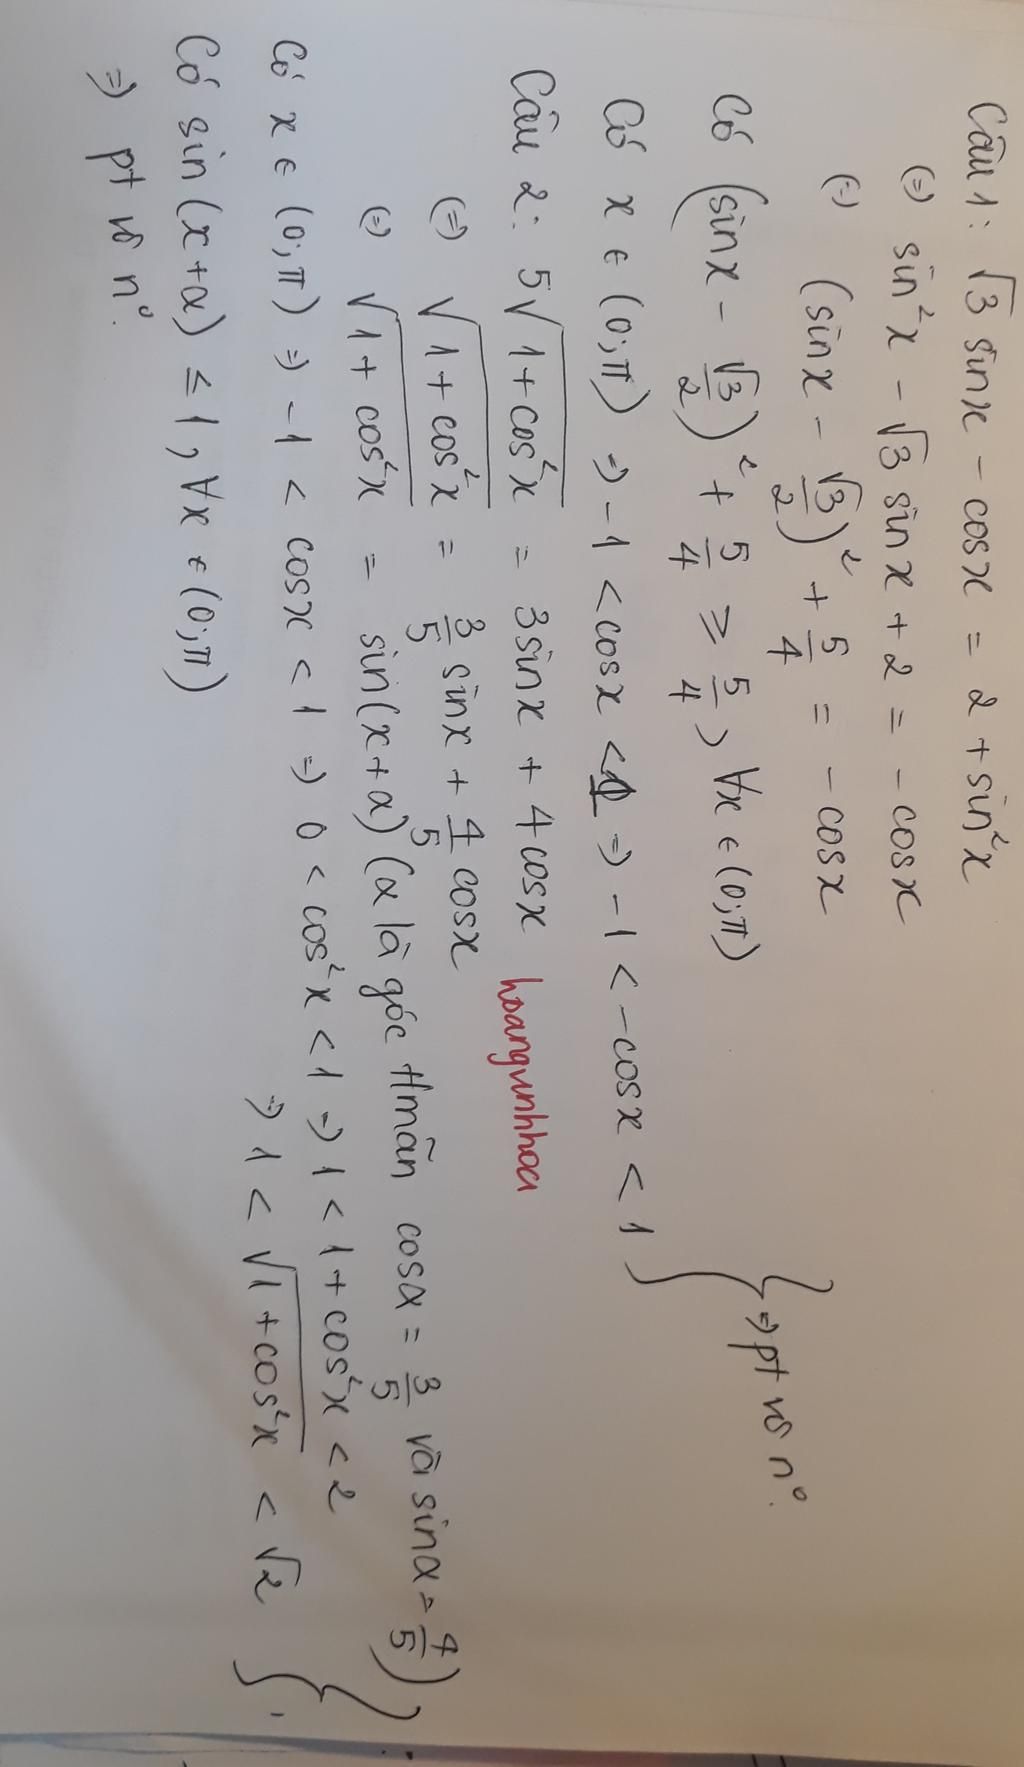 Câu 1: √3 sinx - cosx = 2 + sin²x
(=) sin²x - √3 sinx + 2 = - cosx
(=) (sinx - √3/2)² + 5/4 = - cosx
Có (sinx - √3/2)² + 5/4 ≥ 5/4, ∀x ∈ (0;π)
Có x ∈ (0;π) => -1 < cosx < 1 => -1 < -cosx < 1
} => pt vô n°.
Câu 2: 5√(1+cos²x) = 3sinx + 4cosx
hoangvinhhoa
(=) √(1+cos²x) = 3/5 sinx + 4/5 cosx
(=) √(1+cos²x) = sin(x+α) (α là góc tmãn cosα = 3/5 và sinα = 4/5)
Có x ∈ (0;π) => -1 < cosx < 1 => 0 < cos²x < 1 => 1 < 1 + cos²x < 2
=> 1 < √(1+cos²x) < √2
Có sin(x+α) ≤ 1, ∀x ∈ (0;π)
=> pt vô n°.